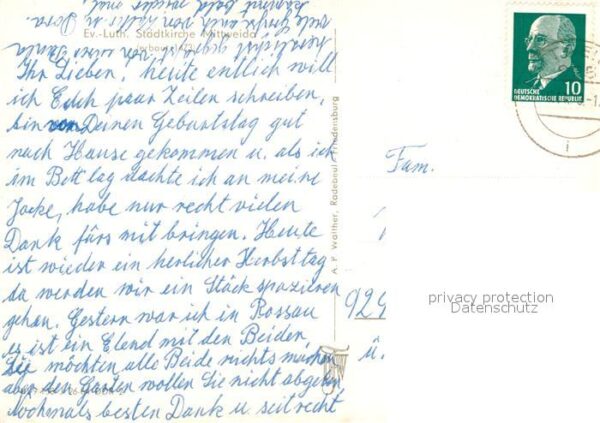 Ev.-Luth. Stadtkirche Mittweida
Ihr Lieben, heute entlich will
ich Euch paar Zeilen schreiben,
bin von Deinen Geburtstag gut
nach Hause gekommen u. als ich
im Bett lag dachte ich an meine
Jacke, habe nur recht vielen
Dank fürs mit bringen. Heute
ist wieder ein herlicher Herbsttag
da werden wir ein Stück spazieren
gehan. Gestern war ich in Rossau
es ist ein Elend mit den Beiden,
Sie möchten alle Beide nichts machen
aber den Garten wollen Sie nicht abgeben
Nochmals besten Dank u. seit recht
A. P. Walther, Radebeul-Friedensburg
Fam.
929
ü.
10
DEUTSCHE
DEMOKRATISCHE REPUBLIK
privacy protection
Datenschutz